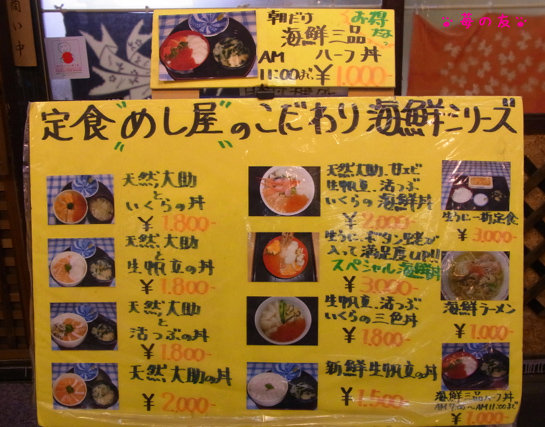 朝どり お得だな？
海鮮三品
AM ハーフ丼
11:00迄 ¥1,000-
定食"めし屋"のこだわり海鮮シリーズ
天然大助
と
いくらの丼
¥1,800-
天然大助
と
生帆立の丼
¥1,800-
天然大助
と
活つぶの丼
¥1,800-
天然大助の丼
¥2,000-
天然大助、甘エビ
生帆立、活つぶ
いくらの海鮮丼
¥2,000-
生うに、ボタン海老が
入って満足度UP!!
スペシャル海鮮丼
¥3,000-
生帆立、活つぶ
いくらの三色丼
¥1,800-
新鮮生帆立の丼
¥1,500-
生うに一折定食
¥3,000-
海鮮ラーメン
¥1,000-
海鮮三品ハーフ丼
AM7:00〜AM11:00まで
¥1,000-